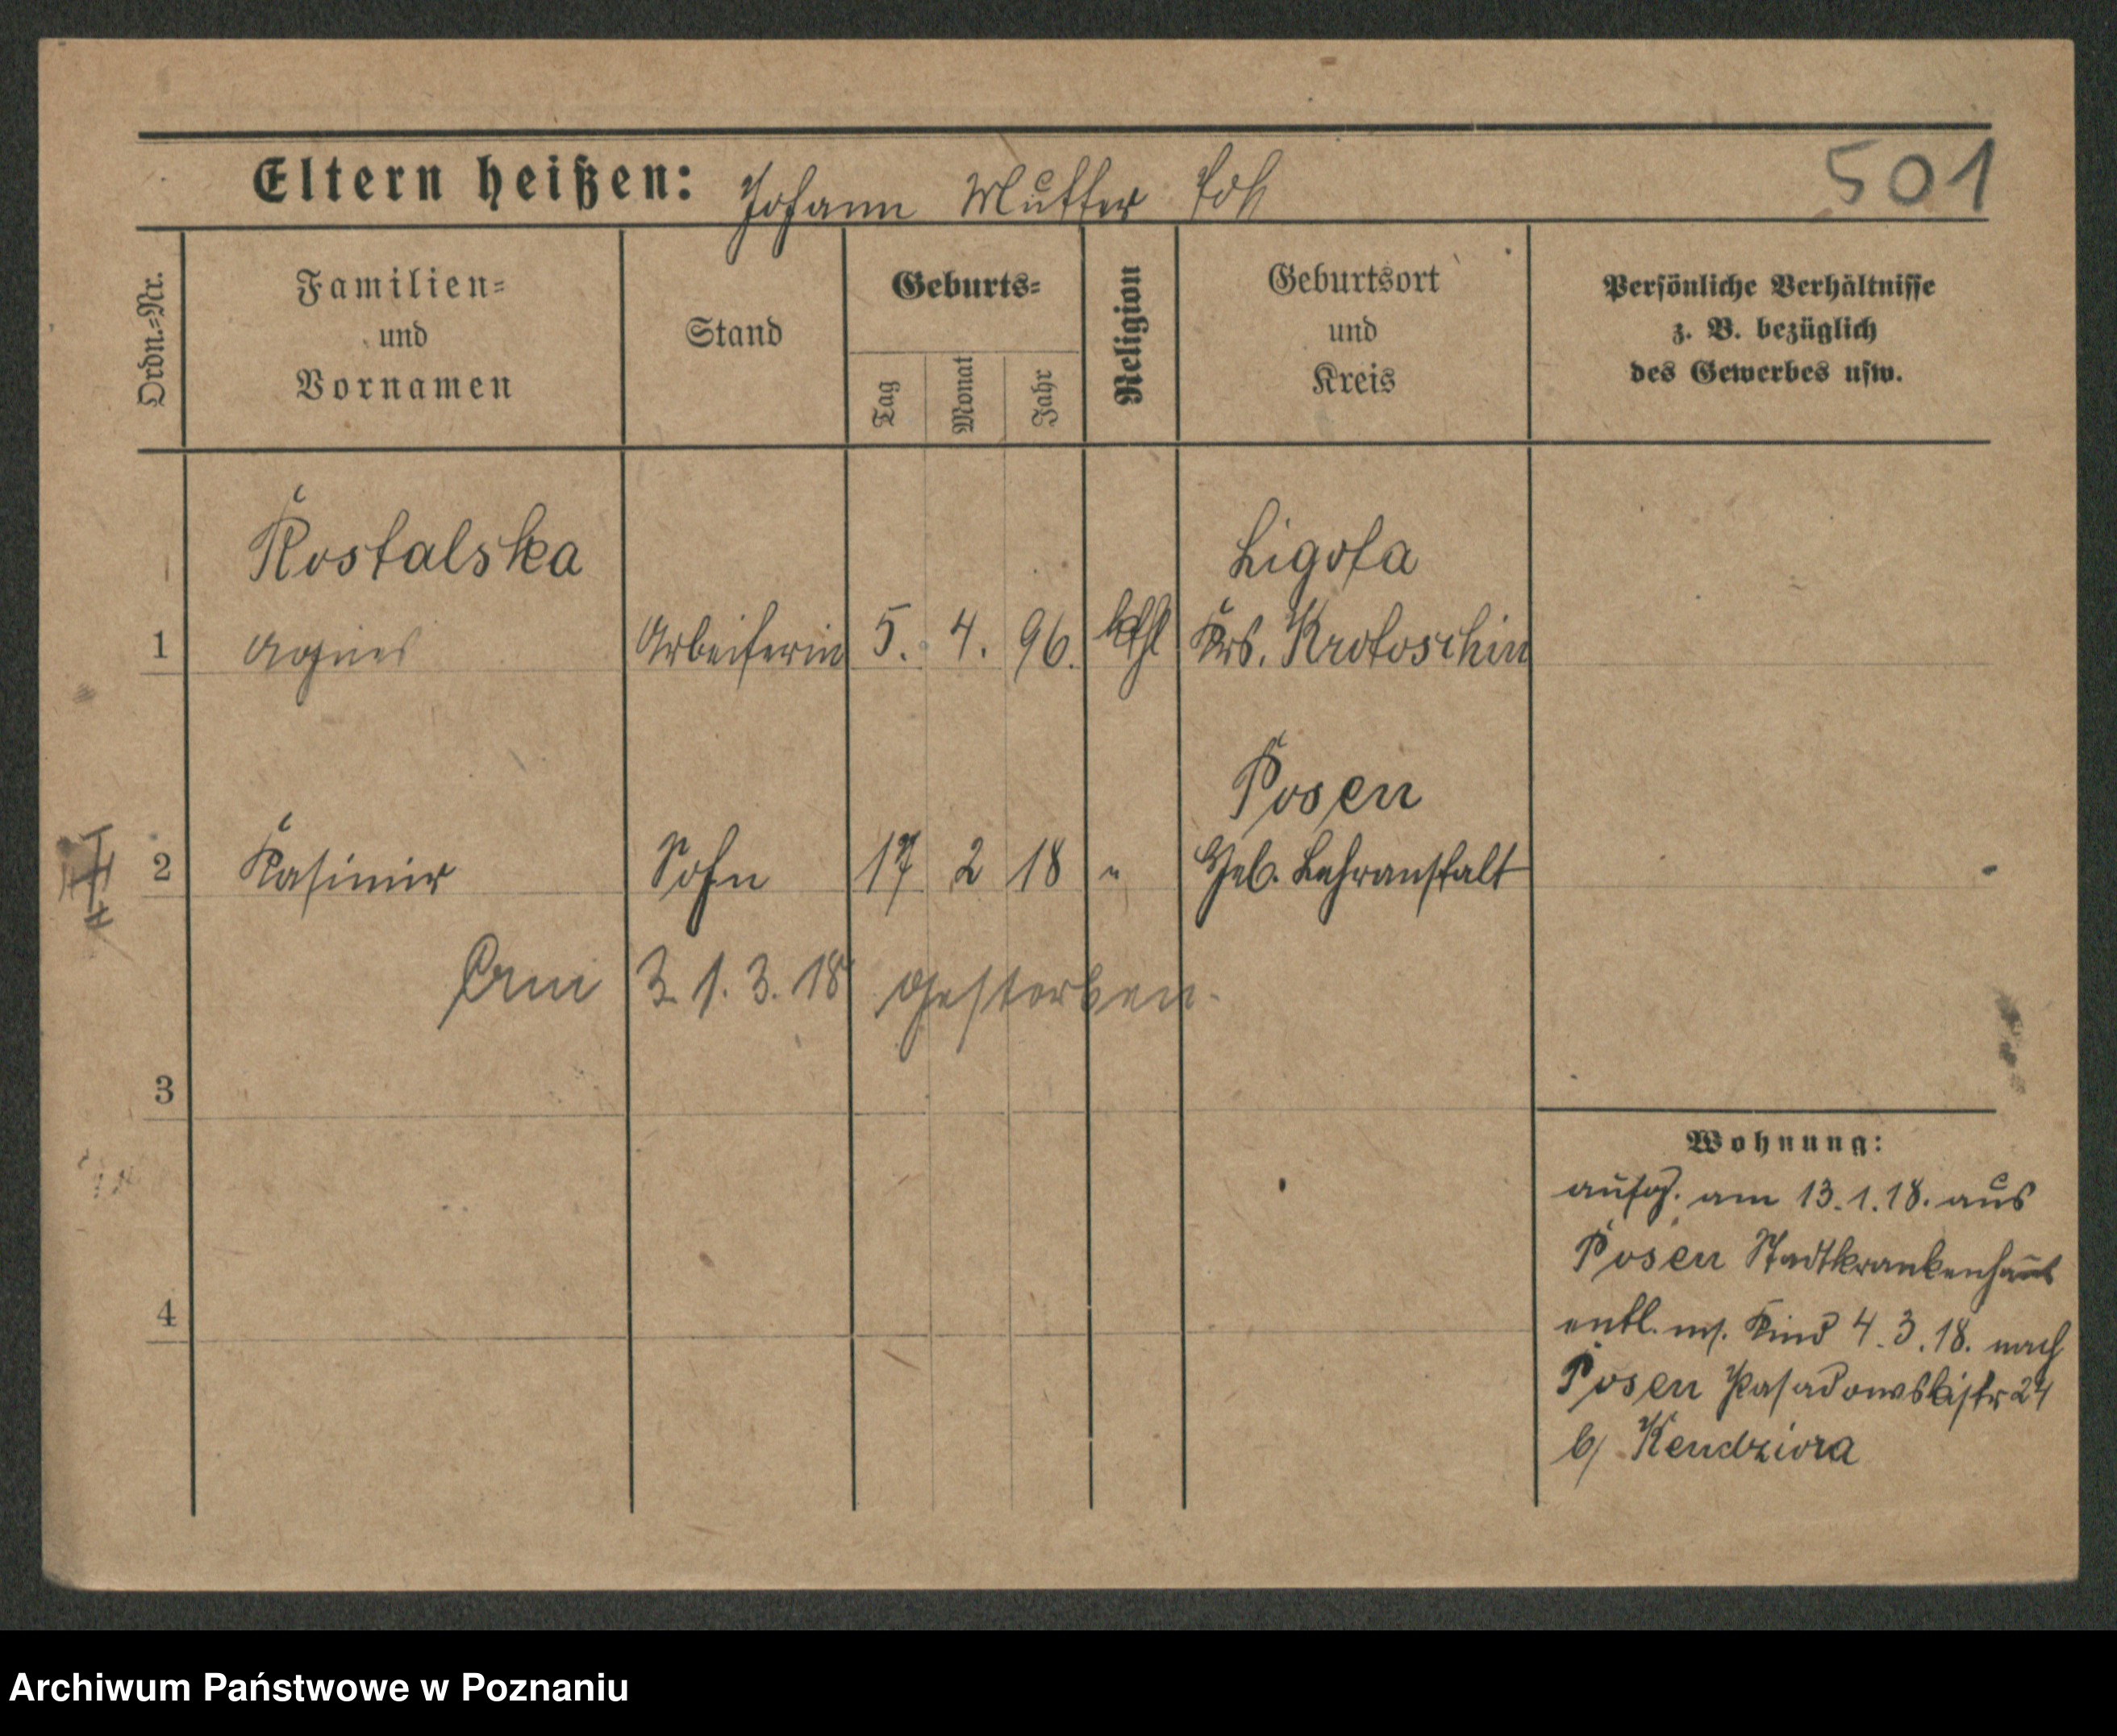 Eltern heißen: Johann Mutter tot
501
Ordn.=Nr.
Familien=
und
Vornamen
Stand
Geburts=
Tag
Monat
Jahr
Religion
Geburtsort
und
Kreis
Persönliche Verhältnisse
z. B. bezüglich
des Gewerbes usw.
Rostalska
Ligota
1 Agnes Arbeiterin 5. 4. 96. kthl Krs. Krotoschin
Posen
2 Kasimir Sohn 17 2 18 " Heb. Lehranstalt
Am 31.3.18 gestorben.
3
Wohnung:
aufg. am 13.1.18. aus
Posen Stadtkrankenhaus
4
entl. m/. Kind 4.3.18. nach
Posen Posadowskistr 24
b/ Kendziora
Archiwum Państwowe w Poznaniu